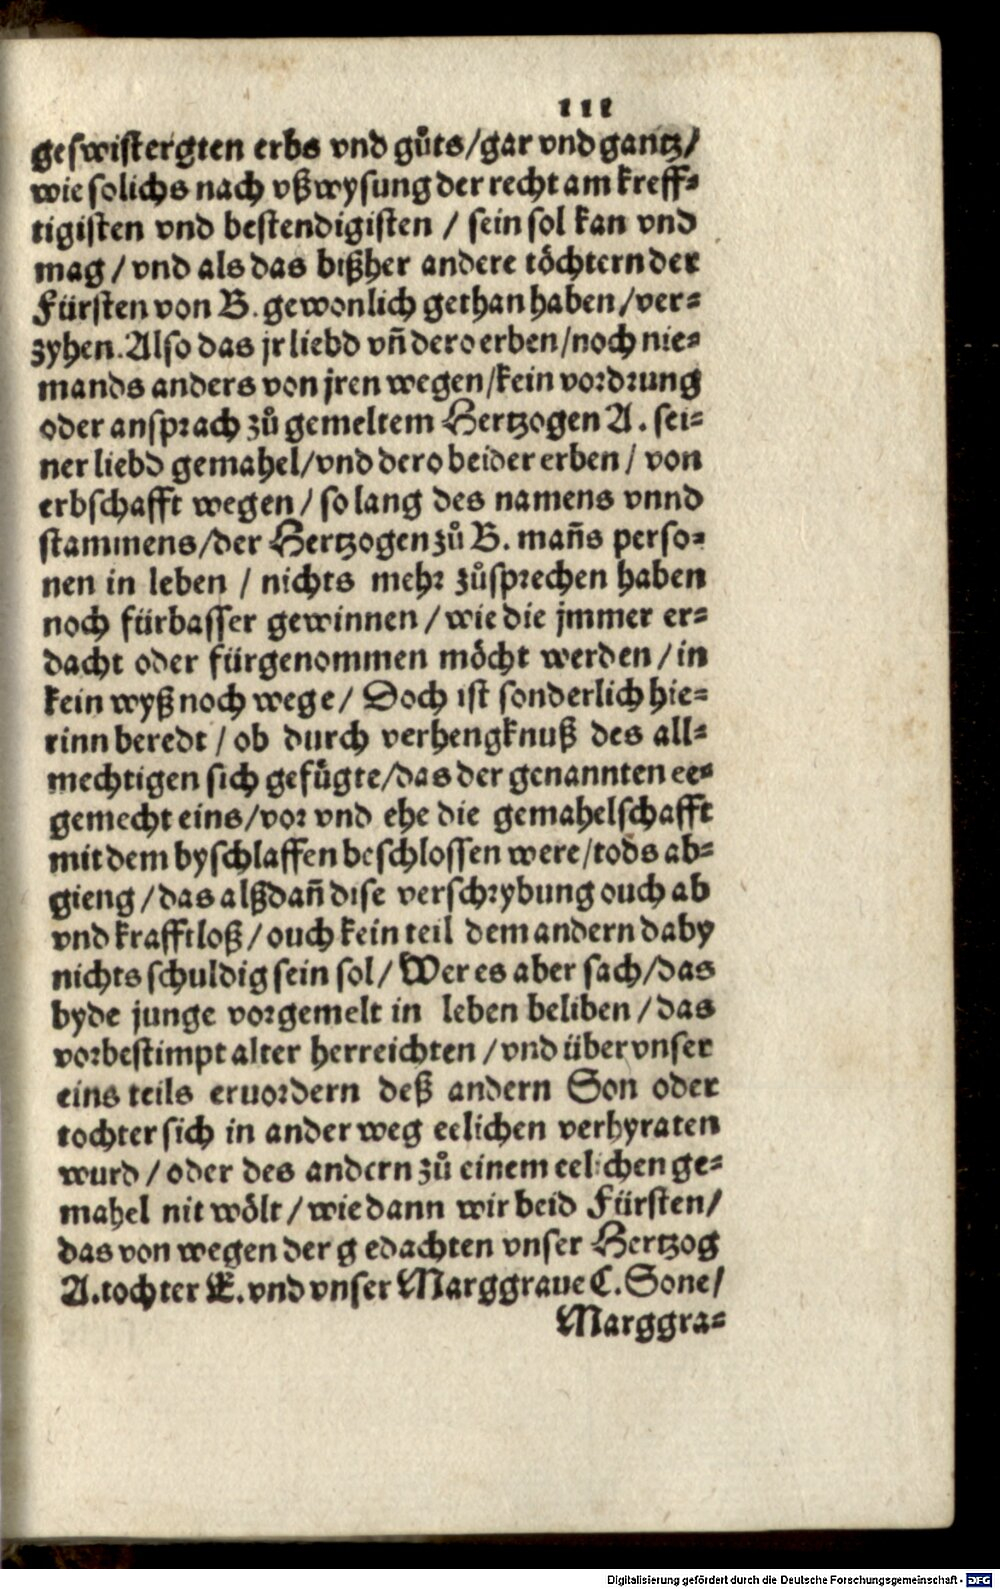 111
geswistergten erbs vnd gůts/gar vnd gantz/
wie solichs nach vßwysung der recht am kreff⸗
tigisten vnd bestendigisten / sein sol kan vnd
mag / vnd als das bißher andere töchtern der
Fürsten von B. gewonlich gethan haben/ver⸗
zyhen. Also das jr liebd vn̄ dero erben/noch nie⸗
mands anders von jren wegen/kein vordrung
oder ansprach zů gemeltem Hertzogen A. sei⸗
ner liebd gemahel/vnd dero beider erben / von
erbschafft wegen / so lang des namens vnnd
stammens/der Hertzogen zů B. man̄s perso⸗
nen in leben / nichts mehr zůsprechen haben
noch fürbasser gewinnen / wie die jmmer er⸗
dacht oder fürgenommen möcht werden / in
kein wyß noch wege / Doch ist sonderlich hie⸗
rinn beredt / ob durch verhengknuß des all⸗
mechtigen sich gefügte/das der genannten ee⸗
gemecht eins/vor vnd ehe die gemahelschafft
mit dem byschlaffen beschlossen were/tods ab⸗
gieng / das alßdan̄ dise verschrybung ouch ab
vnd krafftloß / ouch kein teil dem andern daby
nichts schuldig sein sol / Wer es aber sach/das
byde junge vorgemelt in leben beliben / das
vorbestimpt alter herreichten / vnd über vnser
eins teils eruordern deß andern Son oder
tochter sich in ander weg eelichen verhyraten
wurd / oder des andern zů einem eelichen ge⸗
mahel nit wölt / wie dann wir beid Fürsten/
das von wegen der gedachten vnser Hertzog
A. tochter E. vnd vnser Marggraue C. Sone/
Marggra⸗
Digitalisierung gefördert durch die Deutsche Forschungsgemeinschaft - DFG